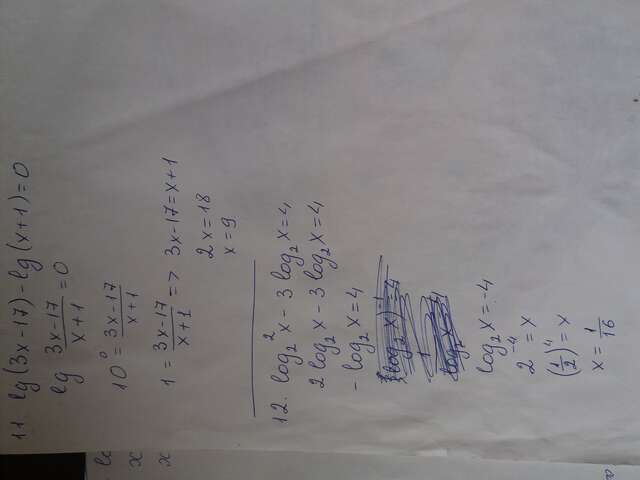 11. lg(3x-17)-lg(x+1)=0
lg (3x-17)/(x+1) = 0
10⁰ = (3x-17)/(x+1)
1 = (3x-17)/(x+1) => 3x-17=x+1
2x=18
x=9
12. log₂²x - 3log₂x=4
2log₂x - 3log₂x=4
-log₂x=4
log₂x=-4
2⁻⁴=x
(1/2)⁴=x
x=1/16